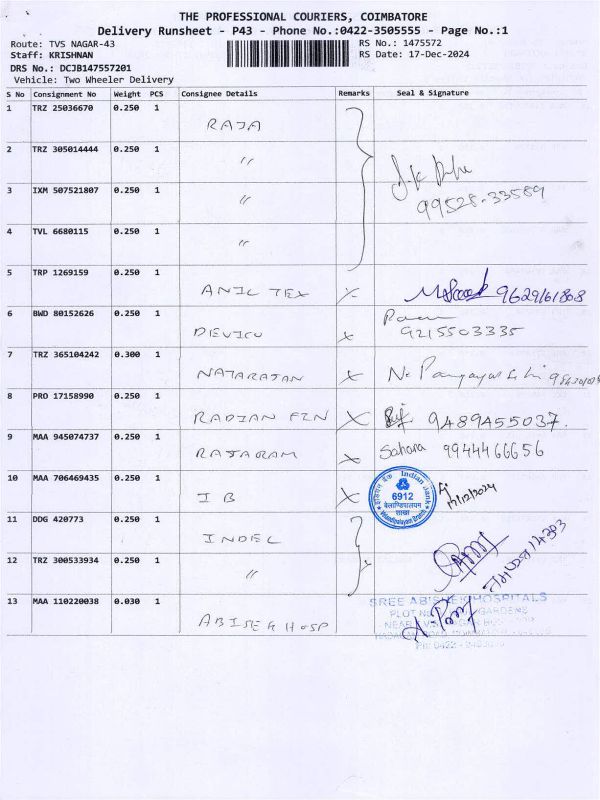 THE PROFESSIONAL COURIERS, COIMBATORE
Delivery Runsheet - P43 - Phone No.:0422-3505555 - Page No.:1
Route: TVS NAGAR-43 RS No.: 1475572
Staff: KRISHNAN RS Date: 17-Dec-2024
DRS No.: DCJB147557201
Vehicle: Two Wheeler Delivery
S No Consignment No Weight PCS Consignee Details Remarks Seal & Signature
1 TRZ 25036670 0.250 1
RAJA
2 TRZ 305014444 0.250 1
〃
3 IXM 507521807 0.250 1
〃 99528-33589
4 TVL 6680115 0.250 1
〃
5 TRP 1269159 0.250 1
ANIL TEX 9629161808
6 BWD 80152626 0.250 1
DEVICU 9215503335
7 TRZ 365104242 0.300 1
NATARAJAN
8 PRO 17158990 0.250 1
RADIAN FIN 9489455037.
9 MAA 945074737 0.250 1
RAJARAM Sahana 9944466656
10 MAA 706469435 0.250 1
IB इंडियन बैंक Indian Bank 6912 शाखा 17/12/2024
11 DDG 420773 0.250 1
INDEL
12 TRZ 300533934 0.250 1
〃
13 MAA 110220038 0.030 1
ABISEK HOSP
SREE ABISHEK HOSPITALS